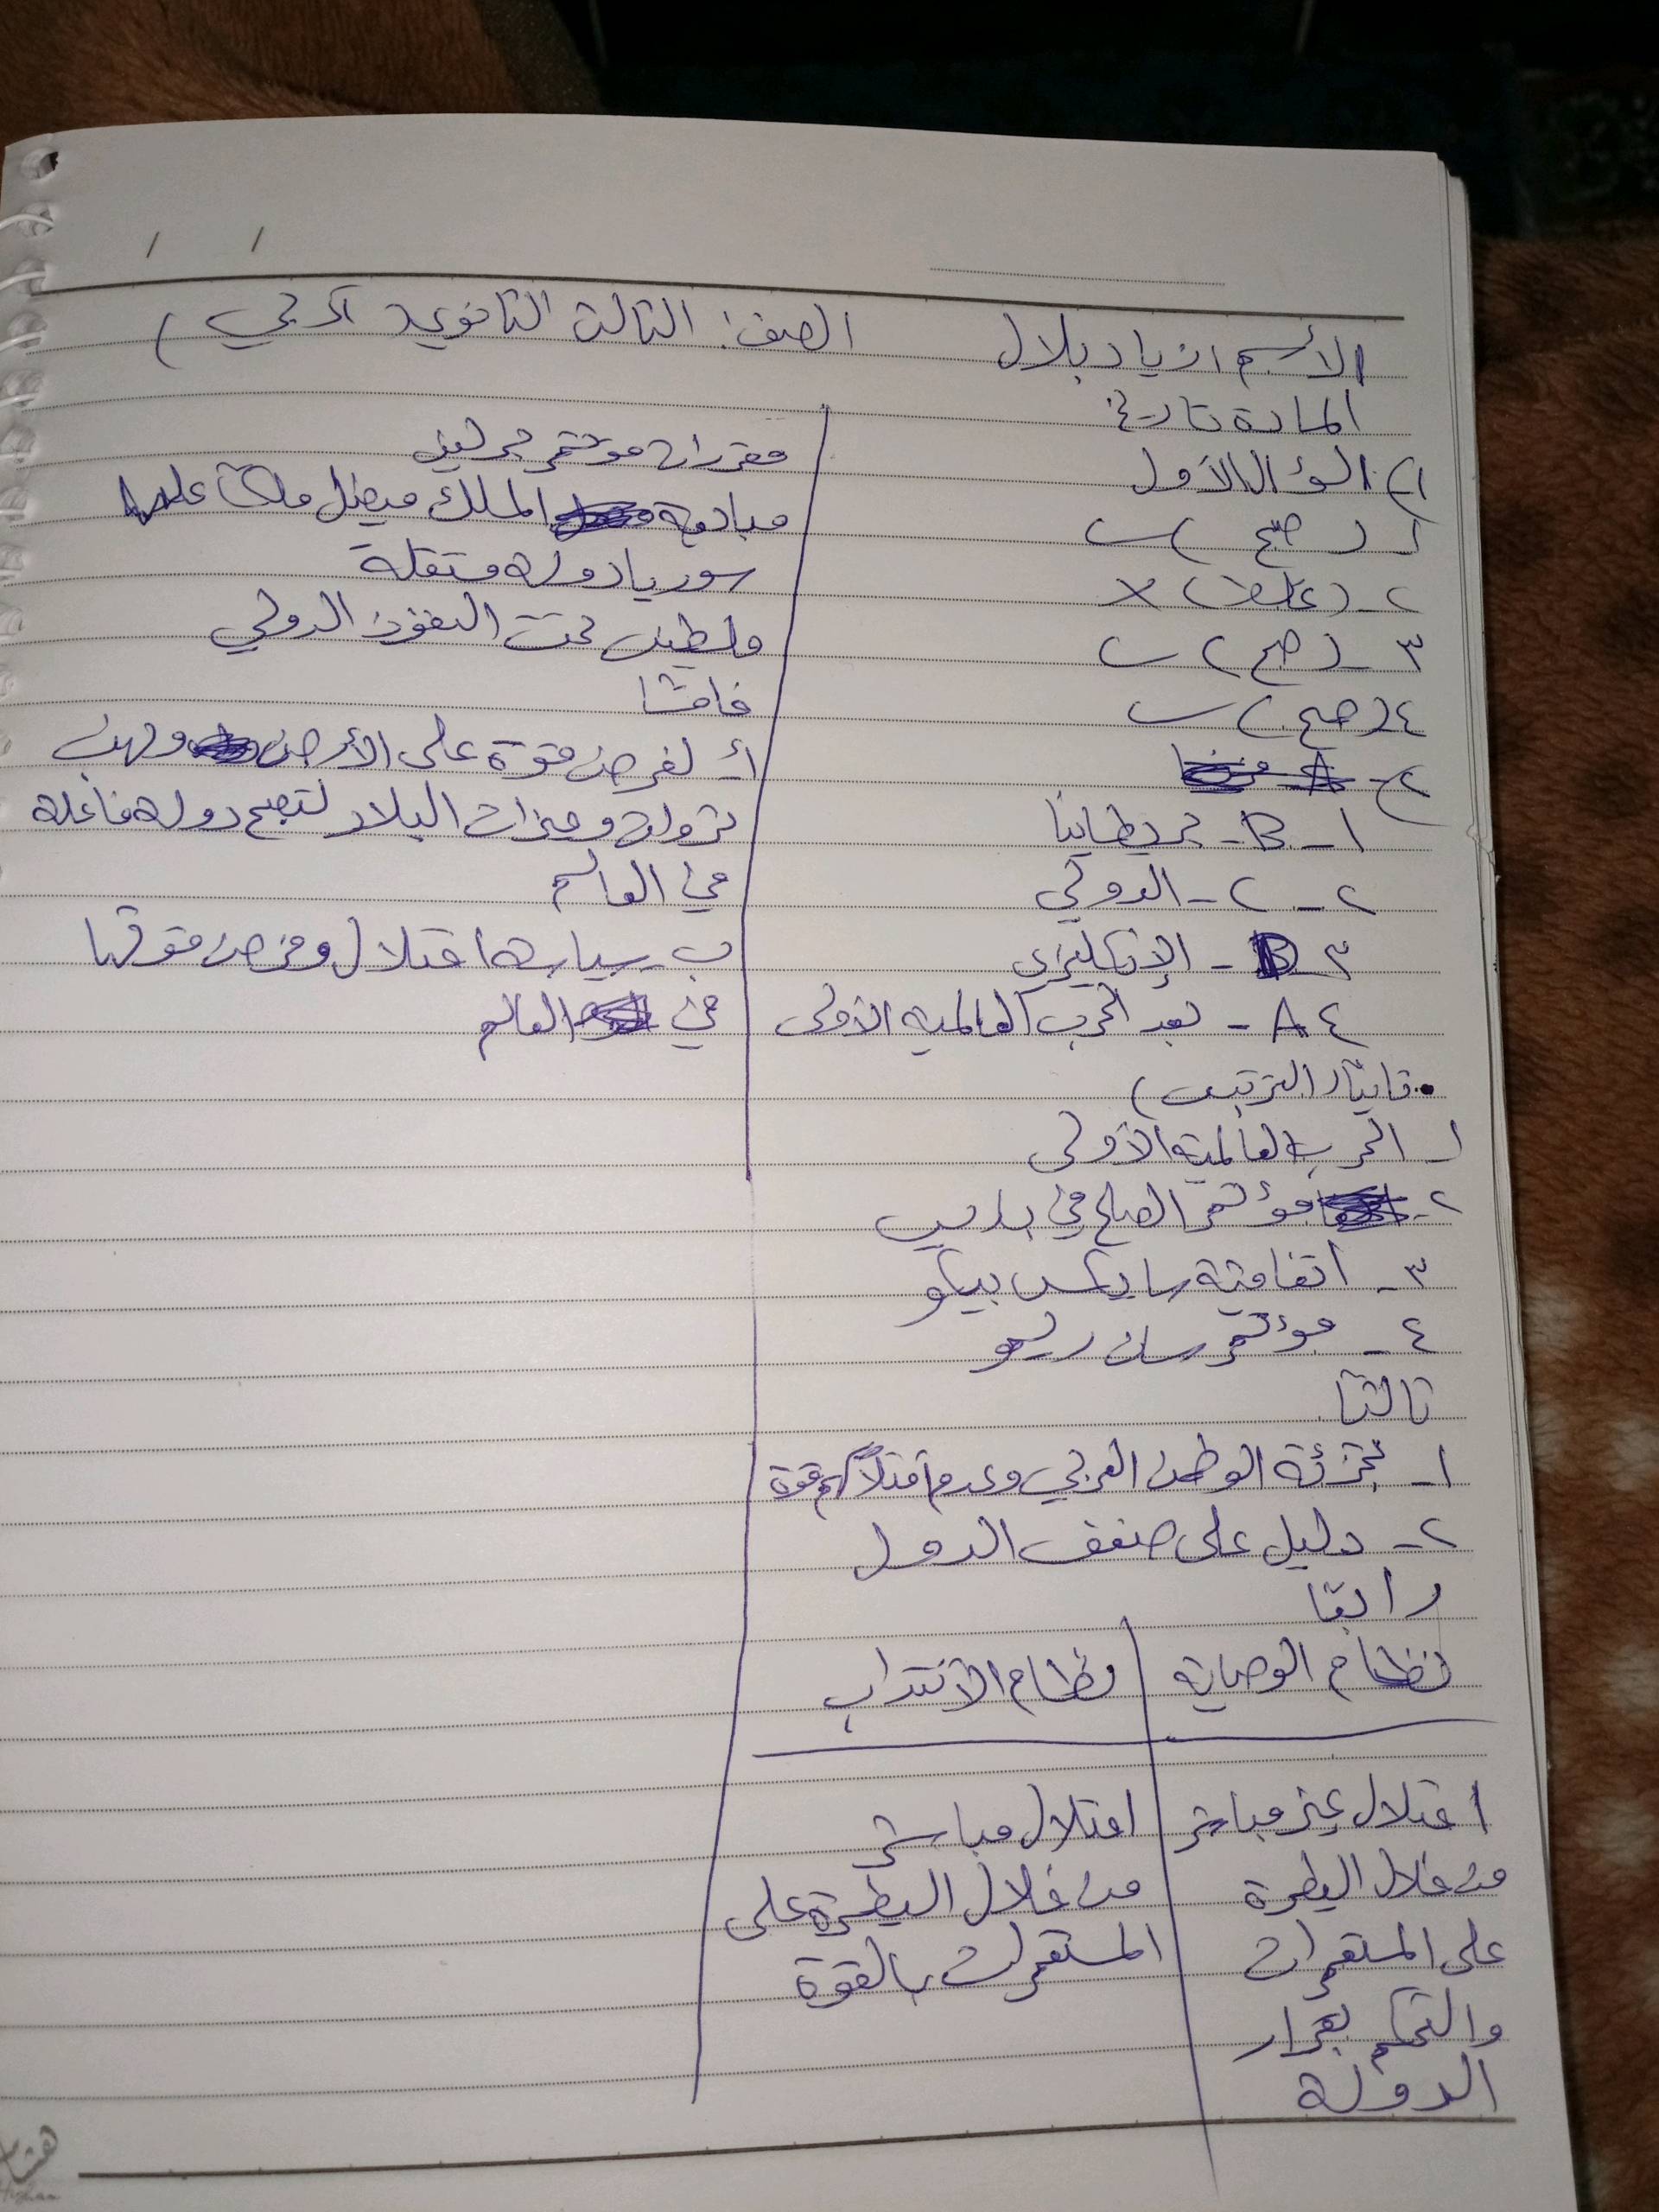 الاسم: زياد بلال
الصف: الثالث الثانوي أدبي)
المادة تاريخ
١) السؤال الأول
١ ( صح )
٢ - (غلط) X
٣ - (صح)
٤ (صح)
٢ -
١ - B - بريطانيا
٢ - C - الدولي
٣ - B - الإنكليزي
٤ A - بعد الحرب العالمية الأولى
• ثانيًا (الترتيب)
١ - الحرب العالمية الأولى
٢ - مؤتمر الصلح في باريس
٣ - اتفاقية سايكس بيكو
٤ - مؤتمر سان ريمو
ثالثًا
١ - تجزئة الوطن العربي وعدم قوة
٢ - دليل على ضعف الدول
رابعًا
نظام الوصاية | نظام الانتداب
احتلال غير مباشر | احتلال مباشر
من خلال السيطرة | من خلال السيطرة على
على المستعمرات | المستعمرات بالقوة
والتحكم بقرار
الدولة
مقررات مؤتمر
مبايعة الملك فيصل ملكًا على
سوريا دولة مستقلة
فلسطين تحت النفوذ الدولي
خامسًا
أ - لفرض قوة على الأرض ونهب
ثروات وخيرات البلاد لتصبح دولة فاعلة
في العالم
ب - احتلال وفرض قوتها
في العالم
هشام